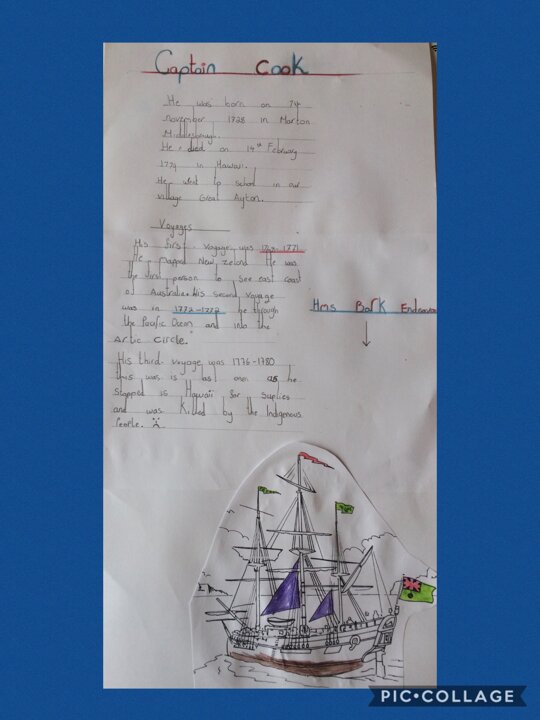 Captain Cook
He was born on 7th
november 1728 in Marton
Middlesbrough.
He died on 14th February
1779 in Hawaii.
He went to school in our
village Great Ayton.
Voyages
His first voyage was 1768-1771
He mapped New Zeland He was
the first person to see east coast
of Australia. His second voyage
was in 1772-1772 he through
the Pacific Ocean and into the
Artic circle.
Hms Bark Endeavour
His third voyage was 1776-1780
this was is as he
Stopped is Hawaii for Suplies
and was Killed by the Indigenous
People.
PIC•COLLAGE